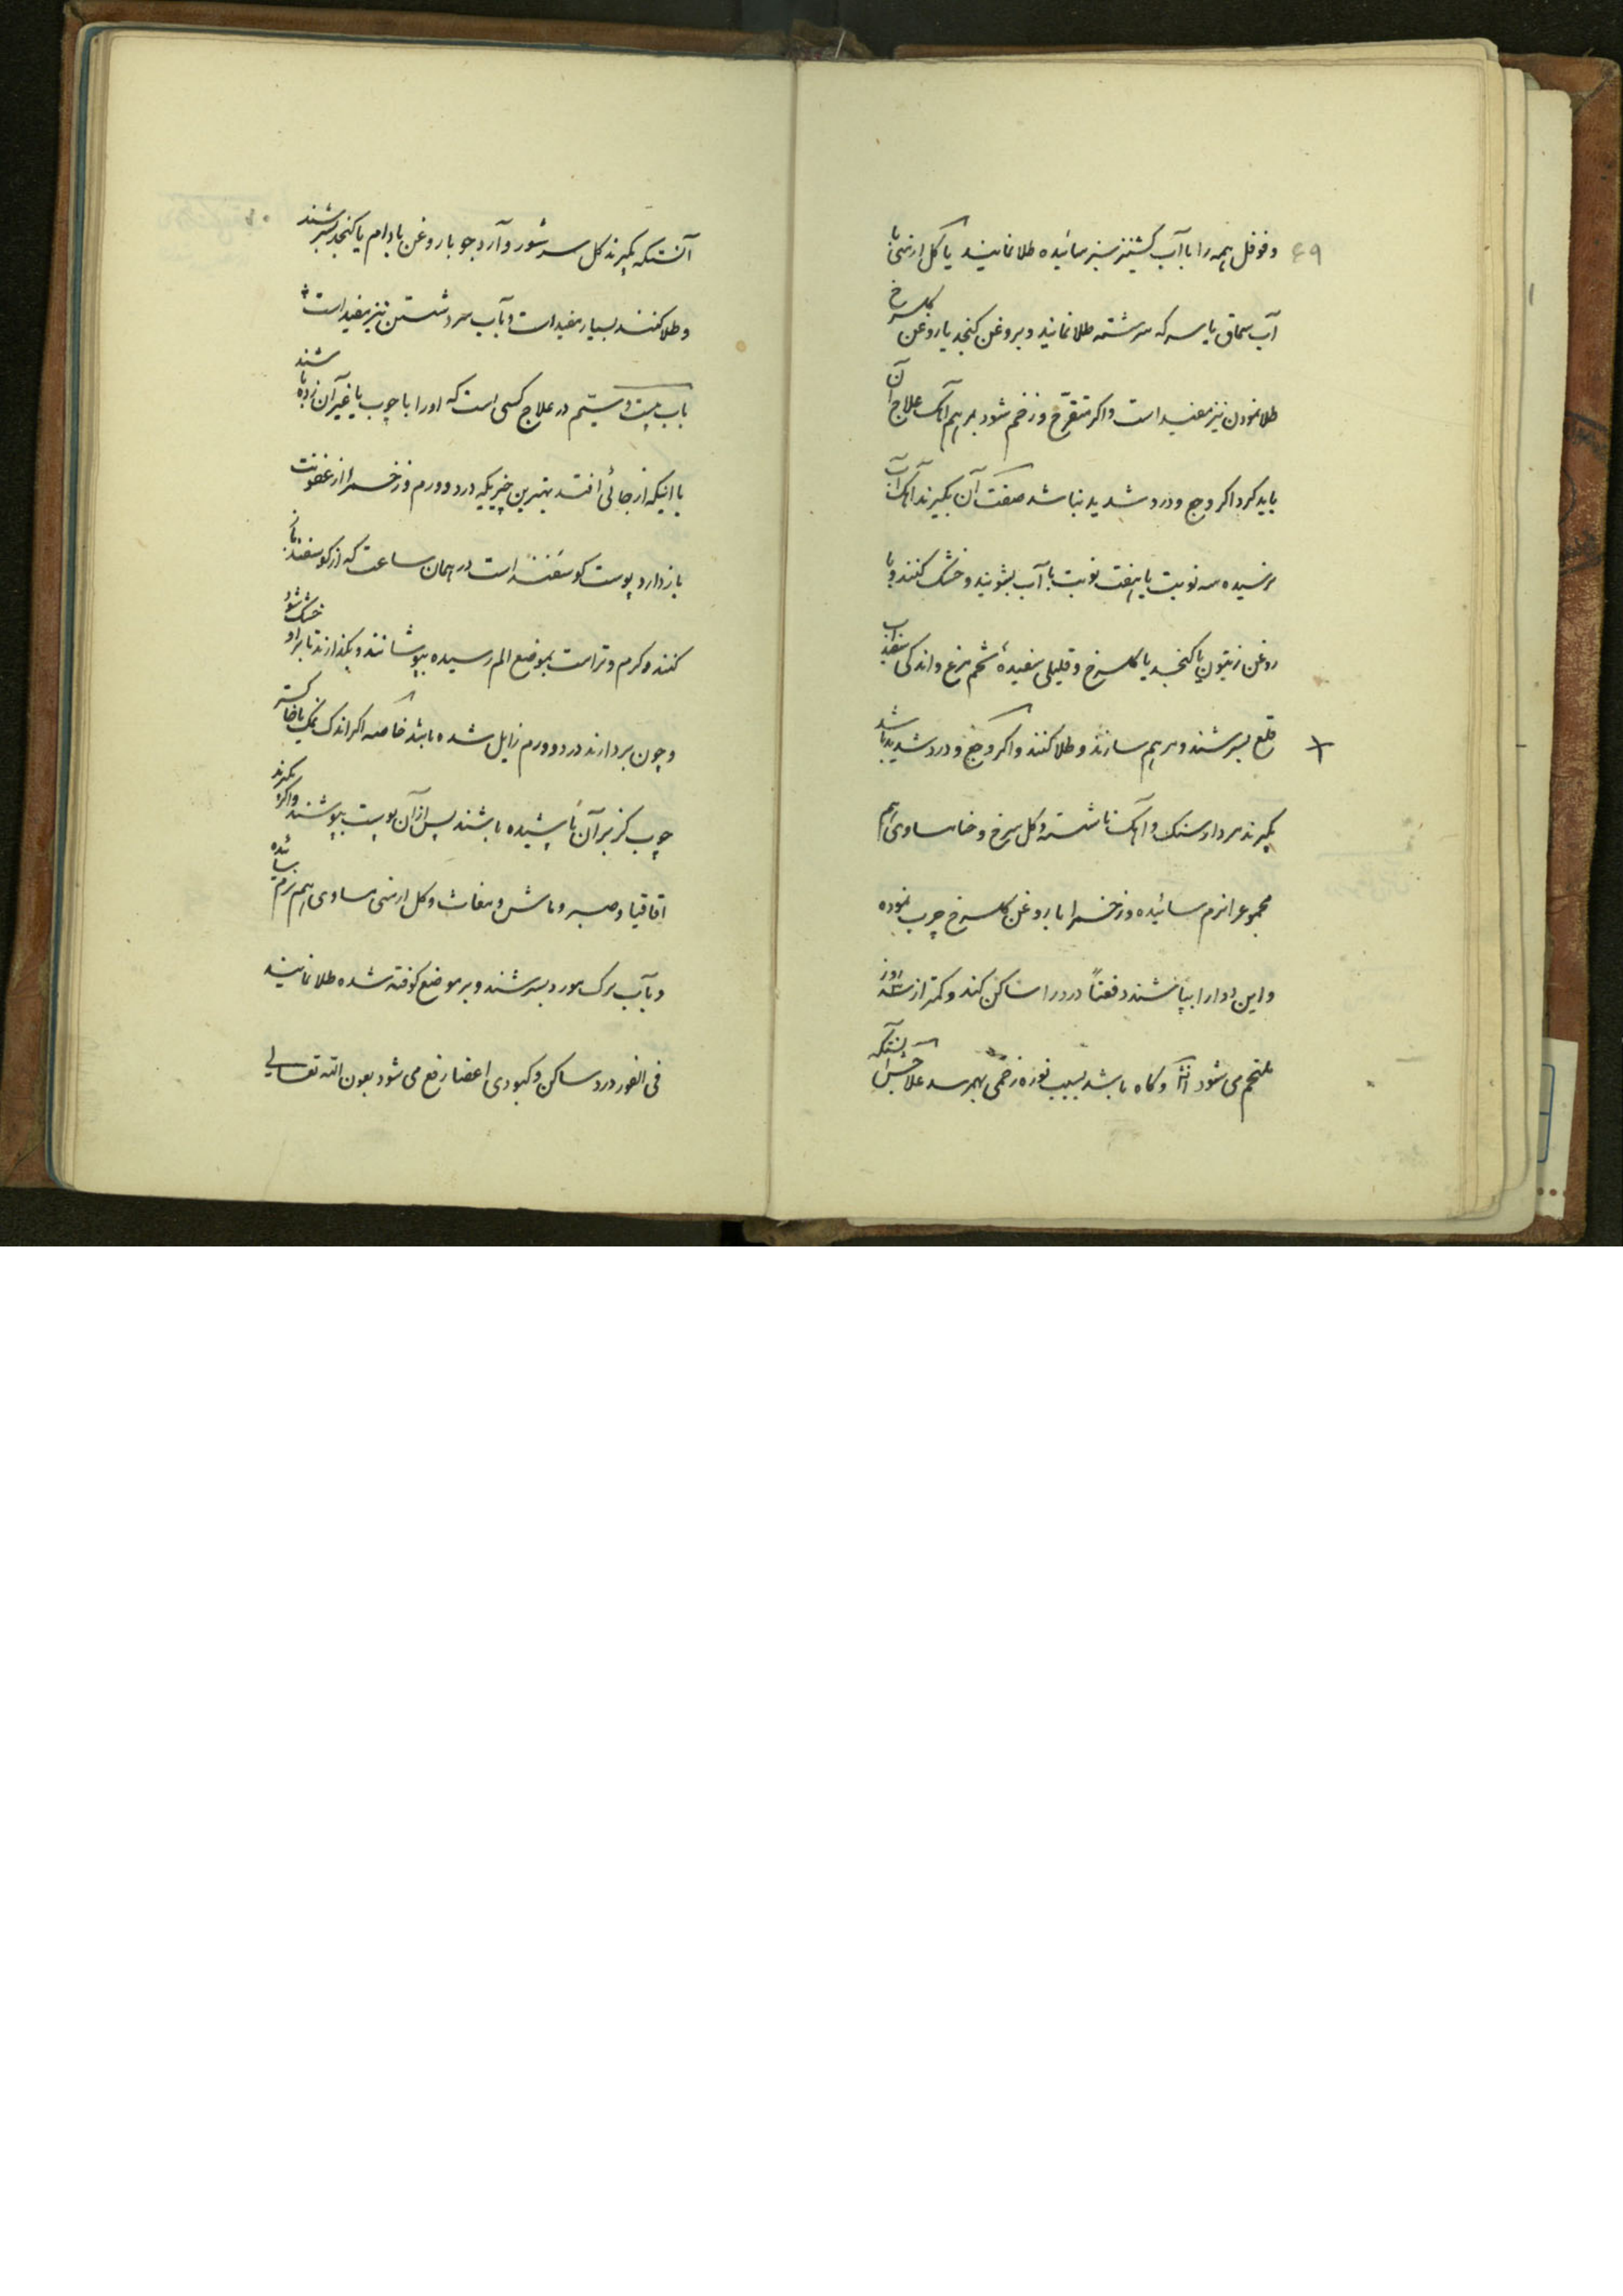 ۶۹
و فوفل همه را با آب کشنیز سبز سائیده طلا نمایند یا کل ارمنی با
آب سماق یا سرکه سرشته طلا نمایند و بروغن کنجد یا روغن کلسرخ
طلا نمودن نیز مفید است و اکر متقرّح و زخم شود بمرهم آهک علاج آن
باید کرد اکر وجع و درد شدید نباشد صفت آن بکیرند آهک آب
نرسیده سه نوبت یا هفت نوبت با آب بشویند و خشک کنند و با
روغن زیتون یا کنجد یا کلسرخ و قلیلی سفیدهٔ تخم مرغ و اندکی سفیداب
قلع بسرشند و مرهم سازند و طلا کنند و اکر وجع و درد شدید باشد
بکیرند مردارسنک و آهک ناشسته و کل سرخ و حنا مساوی هم
مجموع را نرم سائیده و زخم را با روغن کلسرخ چرب نموده
و این دوا را بپاشند دفعتاً درد را ساکن کند و کمتر از سه روز
ملتحم می شود و کاه باشد بسبب نوره زخمی بهم رسد علاجش آنستکه
آنستکه بکیرند کل سرشور و آرد جو با روغن بادام یا کنجد بسرشند
و طلا کنند بسیار مفید است و بآب سرد شستن نیز مفید است
باب بیست و سیّم در علاج کسی است که او را با چوب یا غیر آن زده باشند
یا اینکه از جائی افتد بهترین چیزیکه درد و ورم و زخم را از عفونت
باز دارد پوست کوسفند است در همان ساعت که از کوسفند باز
کنند و کرم و تر است بموضع الم رسیده بپوشانند و بکذارند تا بر او خشک شود
و چون بردارند درد و ورم زایل شده باشد خاصه اکر اندک نمک یا خاکستر
چوب کز بر آن پاشیده باشند پس از آن پوست بپوشند و اکر بکیرند
اقاقیا و صبر و ماش و مغاث و کل ارمنی مساوی هم نرم سائیده
و بآب برک مورد بسرشند و بر موضع کوفته شده طلا نمایند
فی الفور درد ساکن و کبودی اعضا رفع می شود بعون الله تعالی